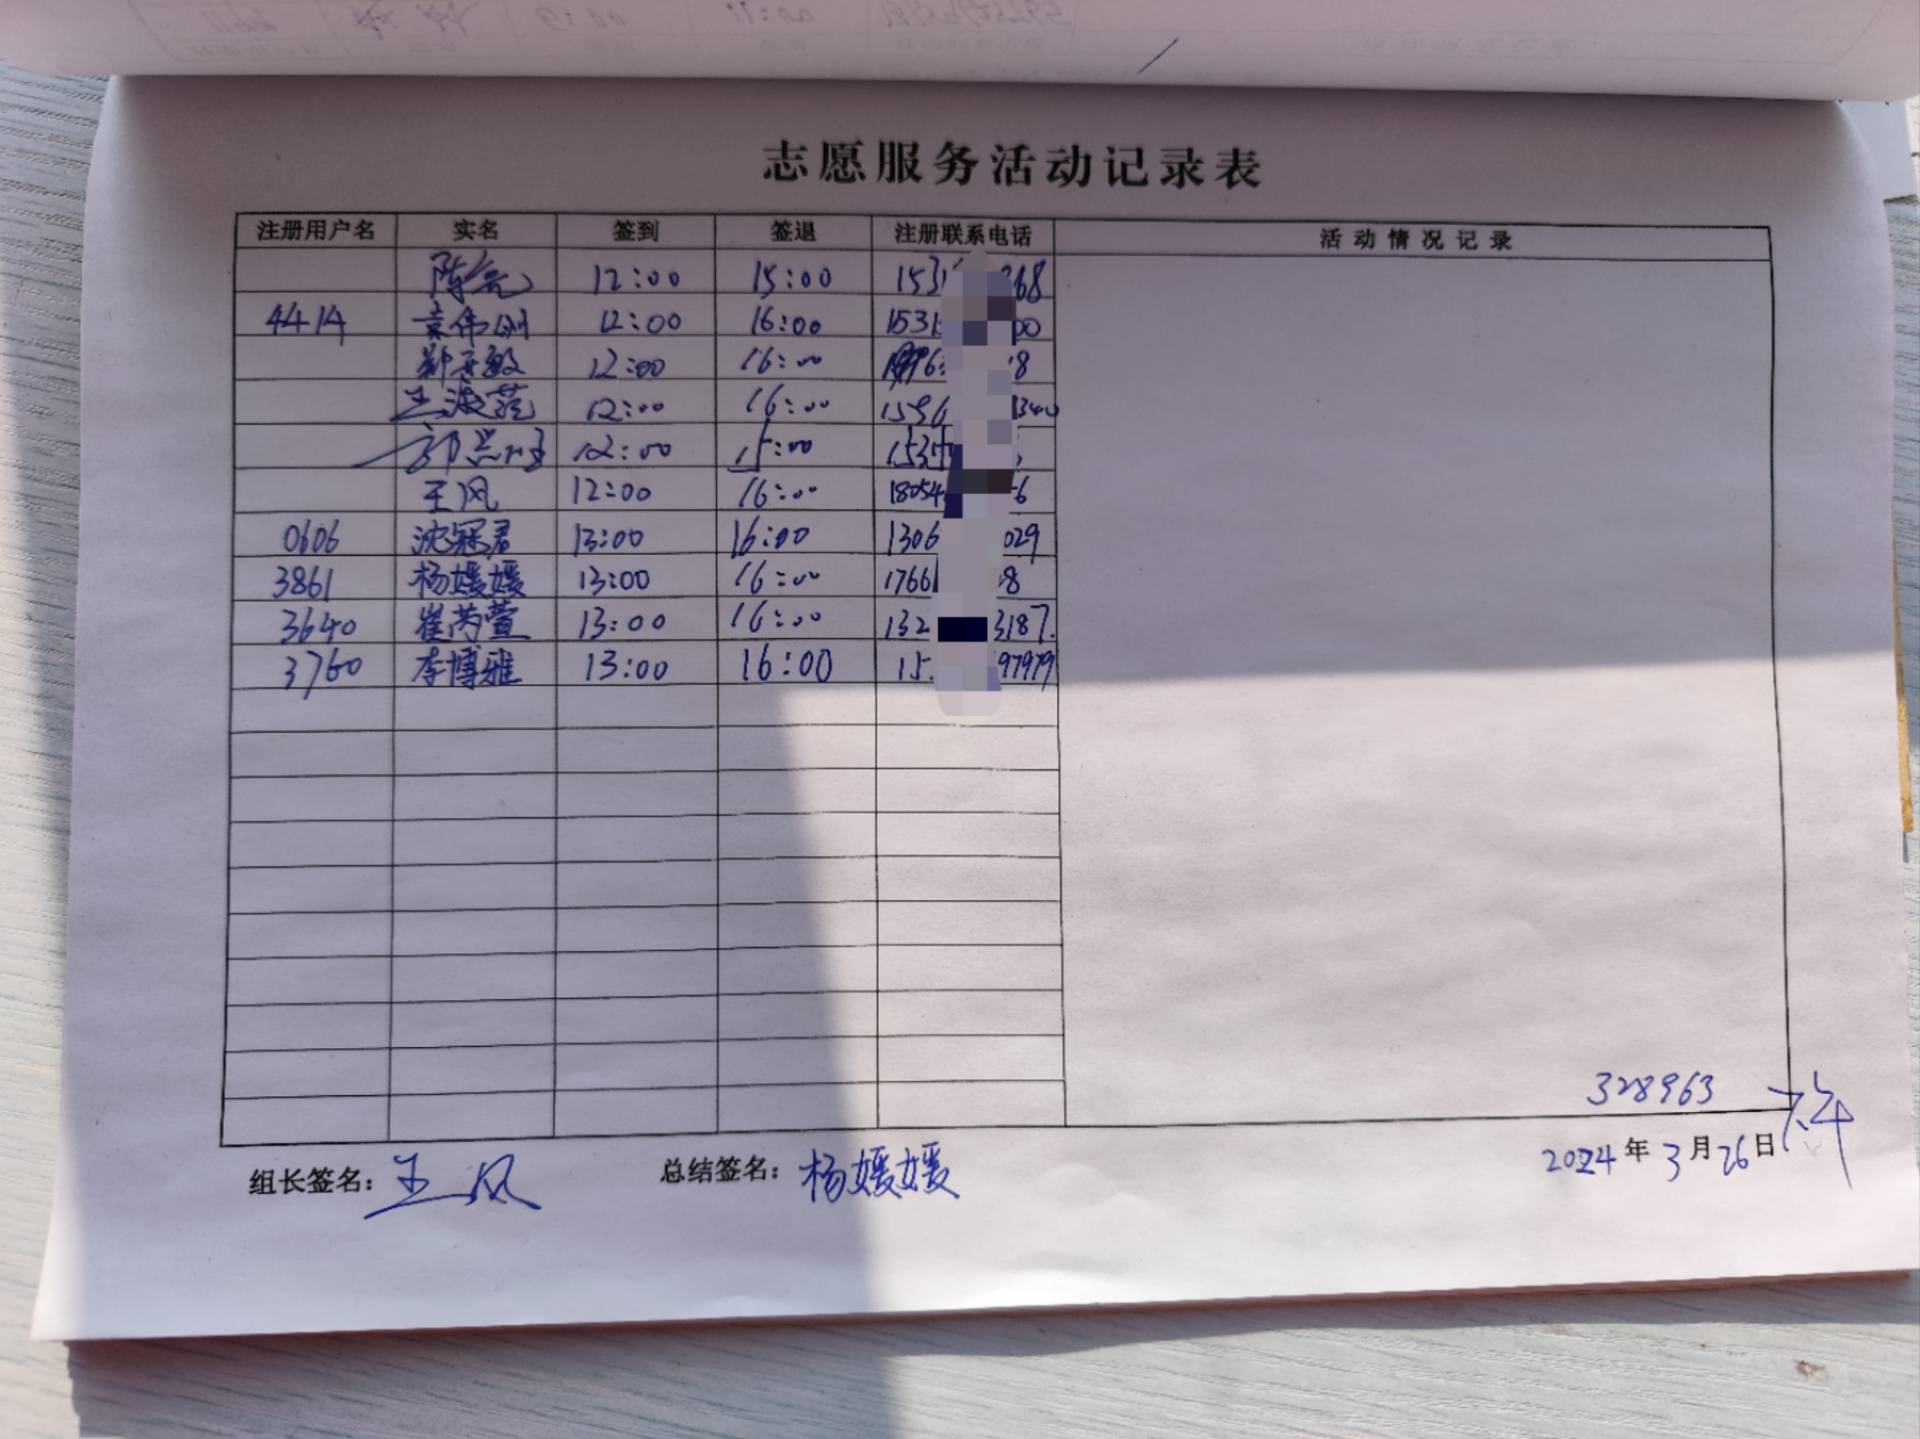 志愿服务活动记录表
注册用户名 实名 签到 签退 注册联系电话 活动情况记录
陈亮 12:00 15:00 1531 268
4414 袁伟刚 12:00 16:00 1531 00
12:00 16:00 8
王淑蕊 12:00 16:00 1596 1340
12:00 15:00 1535
王风 12:00 16:00 18054 6
0606 沈冠君 13:00 16:00 1306 029
3861 杨媛媛 13:00 16:00 1766 8
3640 崔芮萱 13:00 16:00 132 3187.
3760 李博雅 13:00 16:00 15 97979
328963
组长签名: 王风 总结签名: 杨媛媛 2024年3月26日 下午